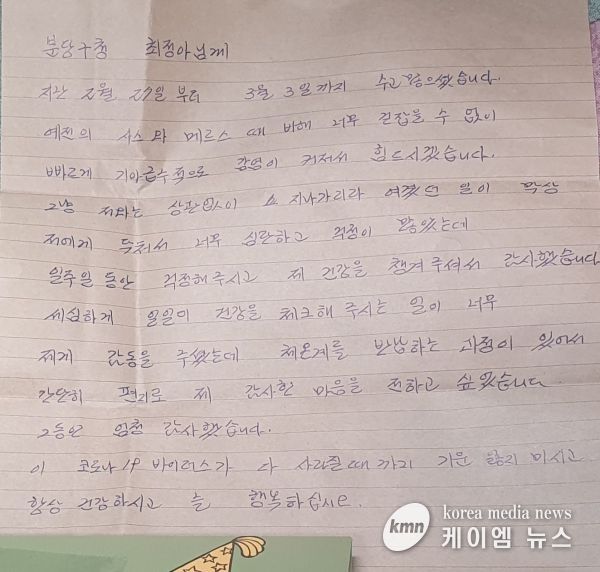 분당구청 최정아님께
지난 2월 27일 부터 3월 3일까지 수고많으셨습니다.
예전의 사스와 메르스 때 비해 너무 걷잡을 수 없이
빠르게 기아급수적으로 감염이 커져서 힘드시겠습니다.
그냥 저와는 상관없이 쇼 지나가리라 여겼던 일이 막상
저에게 닥쳐서 너무 심란하고 걱정이 많았는데
일주일 동안 걱정해주시고 제 건강을 챙겨주셔서 감사했습니다
세심하게 일일이 건강을 체크해 주시는 일이 너무
제게 감동을 주셨는데 체온계를 반납하는 과정이 있어서
간단히 편지로 제 감사한 마음을 전하고 싶었습니다.
그동안 엄청 감사했습니다.
이 코로나19 바이러스가 다 사라질때까지 기운 잃지 마시고
항상 건강하시고 늘 행복하십시오.
kmn korea media news
케이엠 뉴스